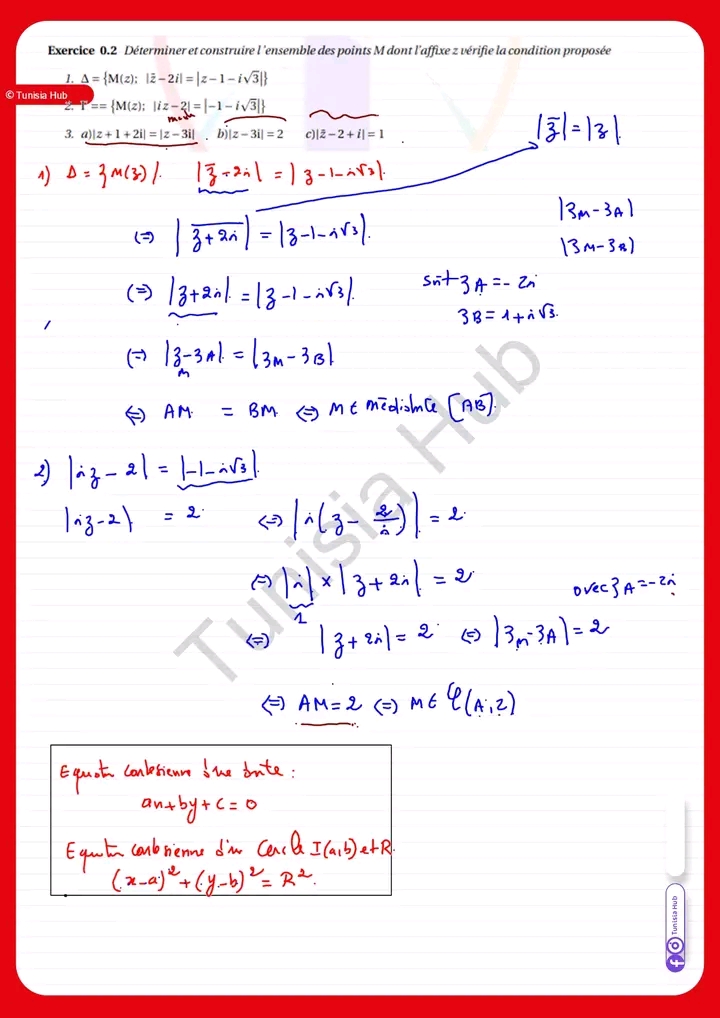 Exercice 0.2 Déterminer et construire l'ensemble des points M dont l'affixe z vérifie la condition proposée
1. Δ = {M(z); |z̄ − 2i| = |z − 1 − i√3|}
© Tunisia Hub
2. Γ == {M(z); |iz − 2| = |−1 − i√3|}
3. a)|z + 1 + 2i| = |z − 3i| . b)|z − 3i| = 2 c)|z̄ − 2 + i| = 1
|z̄| = |z|.
1) Δ = {M(z) /. |z̄ - 2i| = |z - 1 - i√3|.
(=) |\overline{z + 2i}| = |z - 1 - i√3|.
|zM - zA|
|zM - zB|
(=) |z + 2i|. = |z - 1 - i√3|.
soit zA = - 2i
zB = 1 + i√3.
(=) |zM - zA|. = |zM - zB|.
⇔ AM. = BM. ⇔ M ∈ médiatrice [AB].
2) |iz - 2| = |-1 - i√3|.
|iz - 2| = 2. ⇔ |i(z - 2/i)| = 2.
⇔ |i| × |z + 2i| = 2.
1
avec zA = -2i
⇔ |z + 2i| = 2. ⇔ |zM - zA| = 2
⇔ AM = 2 ⇔ M ∈ 𝒞(A, 2)
Tunisia Hub
Equation cartésienne d'une droite :
ax + by + c = 0
Equation cartésienne d'un Cercle I(a,b) et R.
(x - a)² + (y - b)² = R².
Tunisia Hub